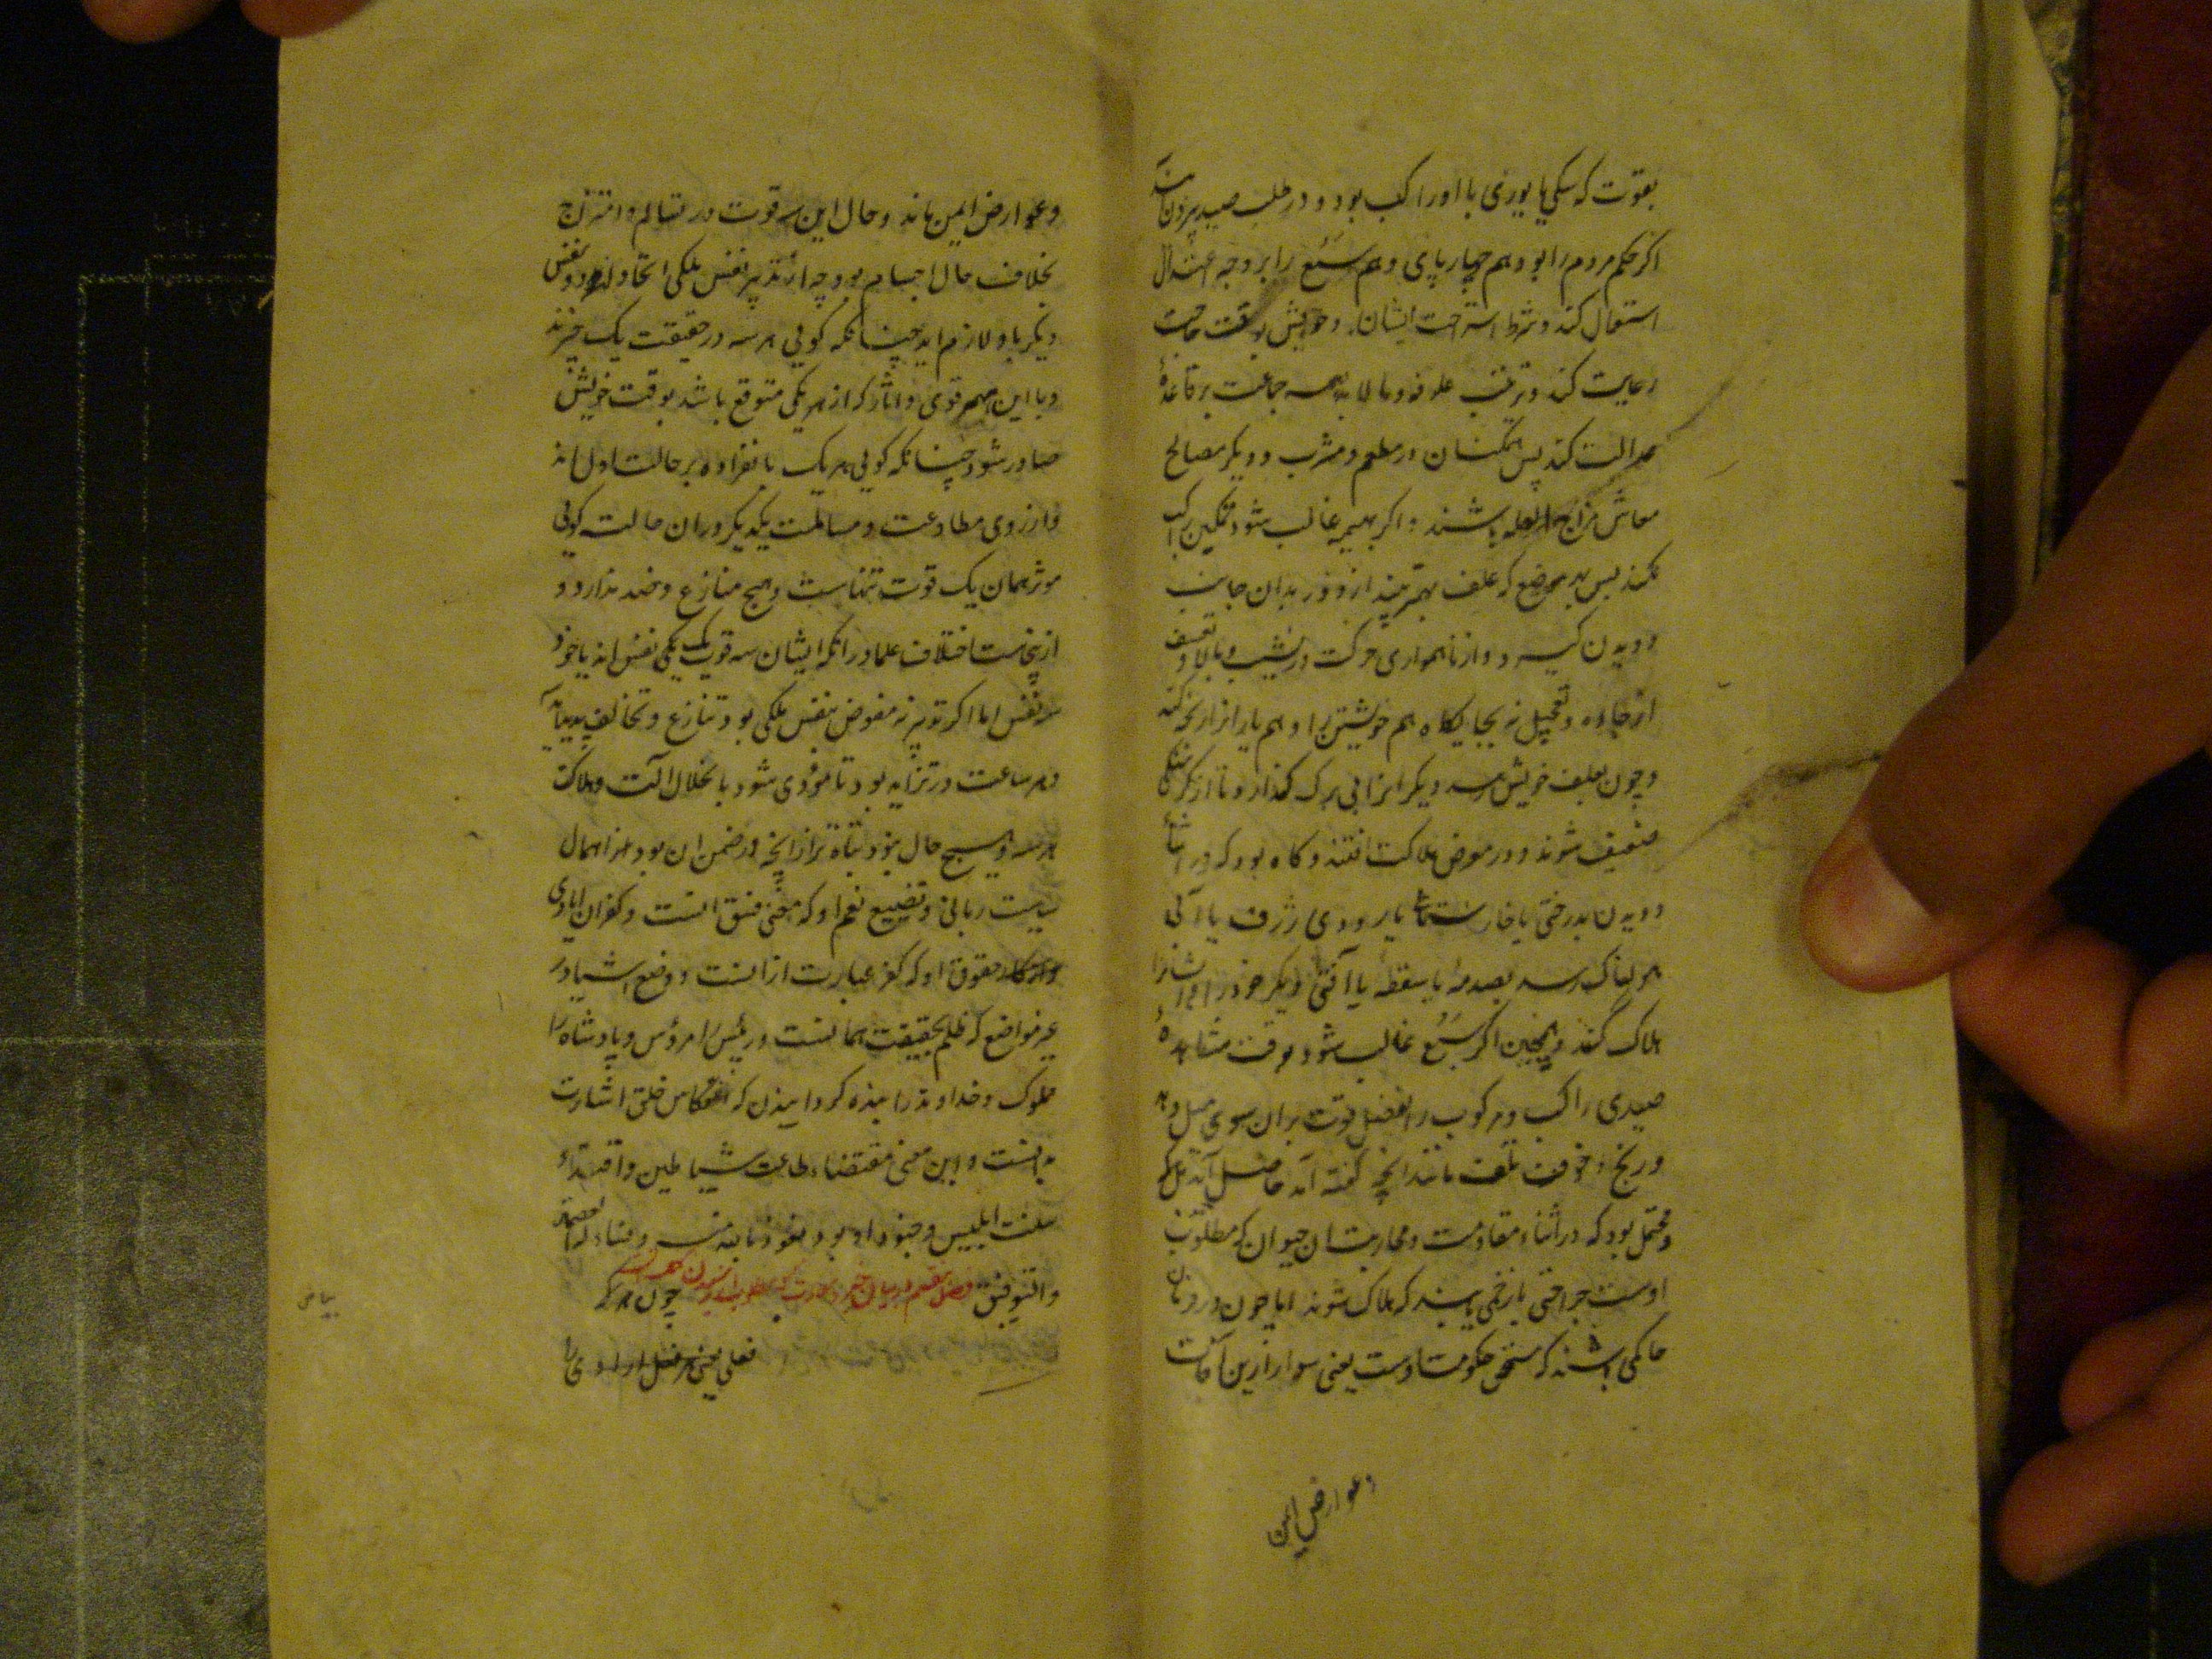 بقوت که سکی یا یوزی با او راکب بود و در طلب صید بیرون آمده
اکر حکم مردم را بود هم چهارپای و هم سبع را بر وجه اعتدال
استعمال کند و شرط استراحت ایشان و خویش بوقت حاجت
رعایت کند و ترتیب علوفه و مالابد همه جماعت بر قاعدهٔ
عدالت کند پس همکنان در مطعم و مشرب و دیکر مصالح
معاش مزاح العله باشند و اکر بهیمه غالب شود تمکین راکب
نکند پس بهر موضع که علف بهتر بیند از دور بدان جانب
دویدن کیرد و از ناهمواری حرکت در نشیب و بالا و تعسف
از جاده و تعجیل نه بجایکاه هم خویشتن را و هم یارانرا رنجه کند
و چون بعلف خویش رسد دیکرانرا بی برک کذارد تا از کرسنکی
ضعیف شوند و در معرض هلاکت افتند و کاه بود که در اثنا
دویدن بدرختی یا خارستانی یا برودی ژرف یا آبی
هولناک رسد بصدمهٔ یا سقطهٔ یا آفتی دیکر خود را و ایشانرا
هلاک کند و همچنین اکر سبع غالب شود بوقت مشاهدهٔ
صیدی راکب و مرکوب را بفضل قوت بران سوی میل دهد
و رنج و خوف تلف مانند انچه کفته آمد حاصل آید بل که
و محتمل بود که در اثناء مقاومت و محاربت ان حیوان که مطلوب
اوست جراحتی یا زخمی یابند که هلاک شوند اما چون در فرمان
حاکمی باشند که مستحق حکومت اوست یعنی سوار ازین آفات
وعوارض ایمن
و عوارض ایمن ماند و حال این سه قوت در تسالم و امتزاج
بخلاف حال اجسام بود چه از تدبیر نفس ملکی اتحاد دو نفس
دیکر با و لازم اید چنانکه کویی هر سه در حقیقت یک چیزند
و با این همه قوی و اثار که از هر یکی متوقع باشد بوقت خویش
صادر شود چنانکه کویی هر یک بانفراده بر حالت اول اند
و از روی مطاوعت و مسالمت یکدیکر دران حالت کویی
موثر همان یک قوت تنهاست و هیچ منازع و ضد ندارد و
ازینجاست اختلاف علما درانکه ایشان سه قوت یک نفس اند یا خود
سه نفس اما اکر تدبیر نه مفوض بنفس ملکی بود تنازع و تخالف پدید آید
و هر ساعت در تزاید بود تا مؤدی شود بانحلال آلت و هلاکت
هر سه و هیچ حال نبود تباه تر از انچه در ضمن ان بود از اهمال
سیاست ربانی و تضییع نعم او که معنی فسق انست و کفران ایادی
و انکار حقوق او که کفر عبارت از انست و وضع اشیا در
غیر مواضع که ظلم بحقیقت همانست و رئیس را مرؤس و پادشاه را
مملوک و خداوند را بنده کردانیدن که انتکاس خلق اشارت
بدانست و این معنی مقتضاء طاعت شیاطین و اقتداء
سنت ابلیس و جنود او بود نعوذ بالله منه و نساله العصمة
والتوفیق فصل هفتم در بیان خیر و سعادت که مطلوب از رسیدن چون هر که
فعلی یعنی هر فعل ارادی را
بیاض